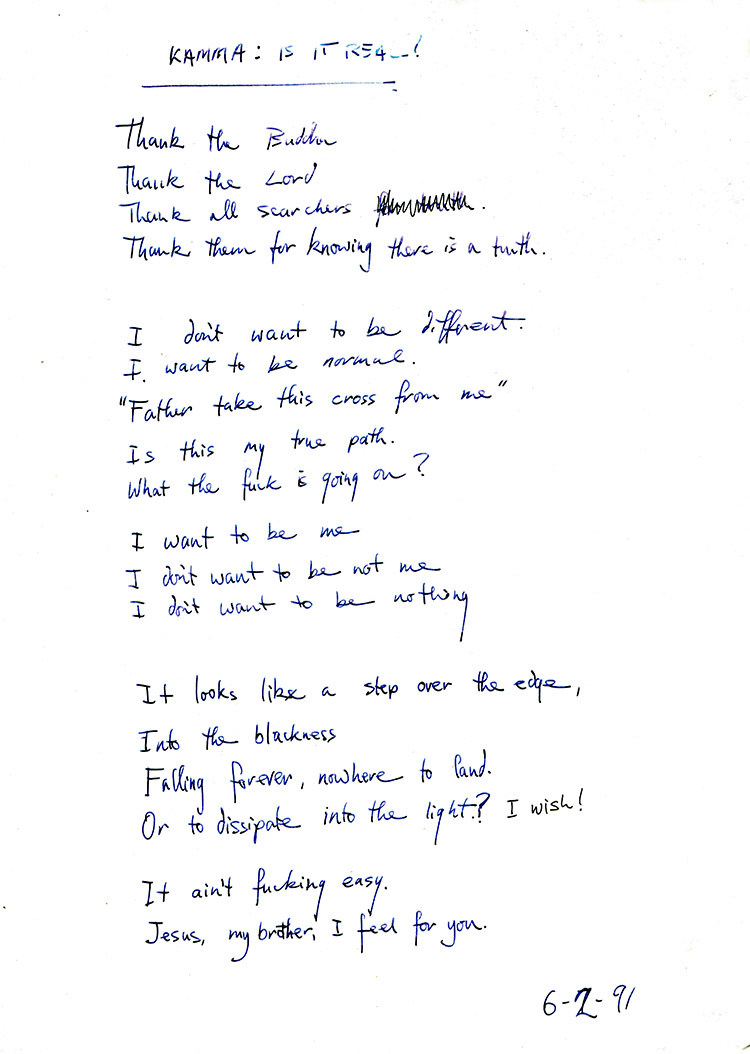 KAMMA: IS IT REAL!
Thank the Buddha
Thank the Lord
Thank all searchers.
Thank them for knowing there is a truth.
I don't want to be different.
I want to be normal.
"Father take this cross from me"
Is this my true path.
What the fuck is going on?
I want to be me
I don't want to be not me
I don't want to be nothing
It looks like a step over the edge,
Into the blackness
Falling forever, nowhere to land.
Or to dissipate into the light? I wish!
It ain't fucking easy.
Jesus, my brother, I feel for you.
6-2-91